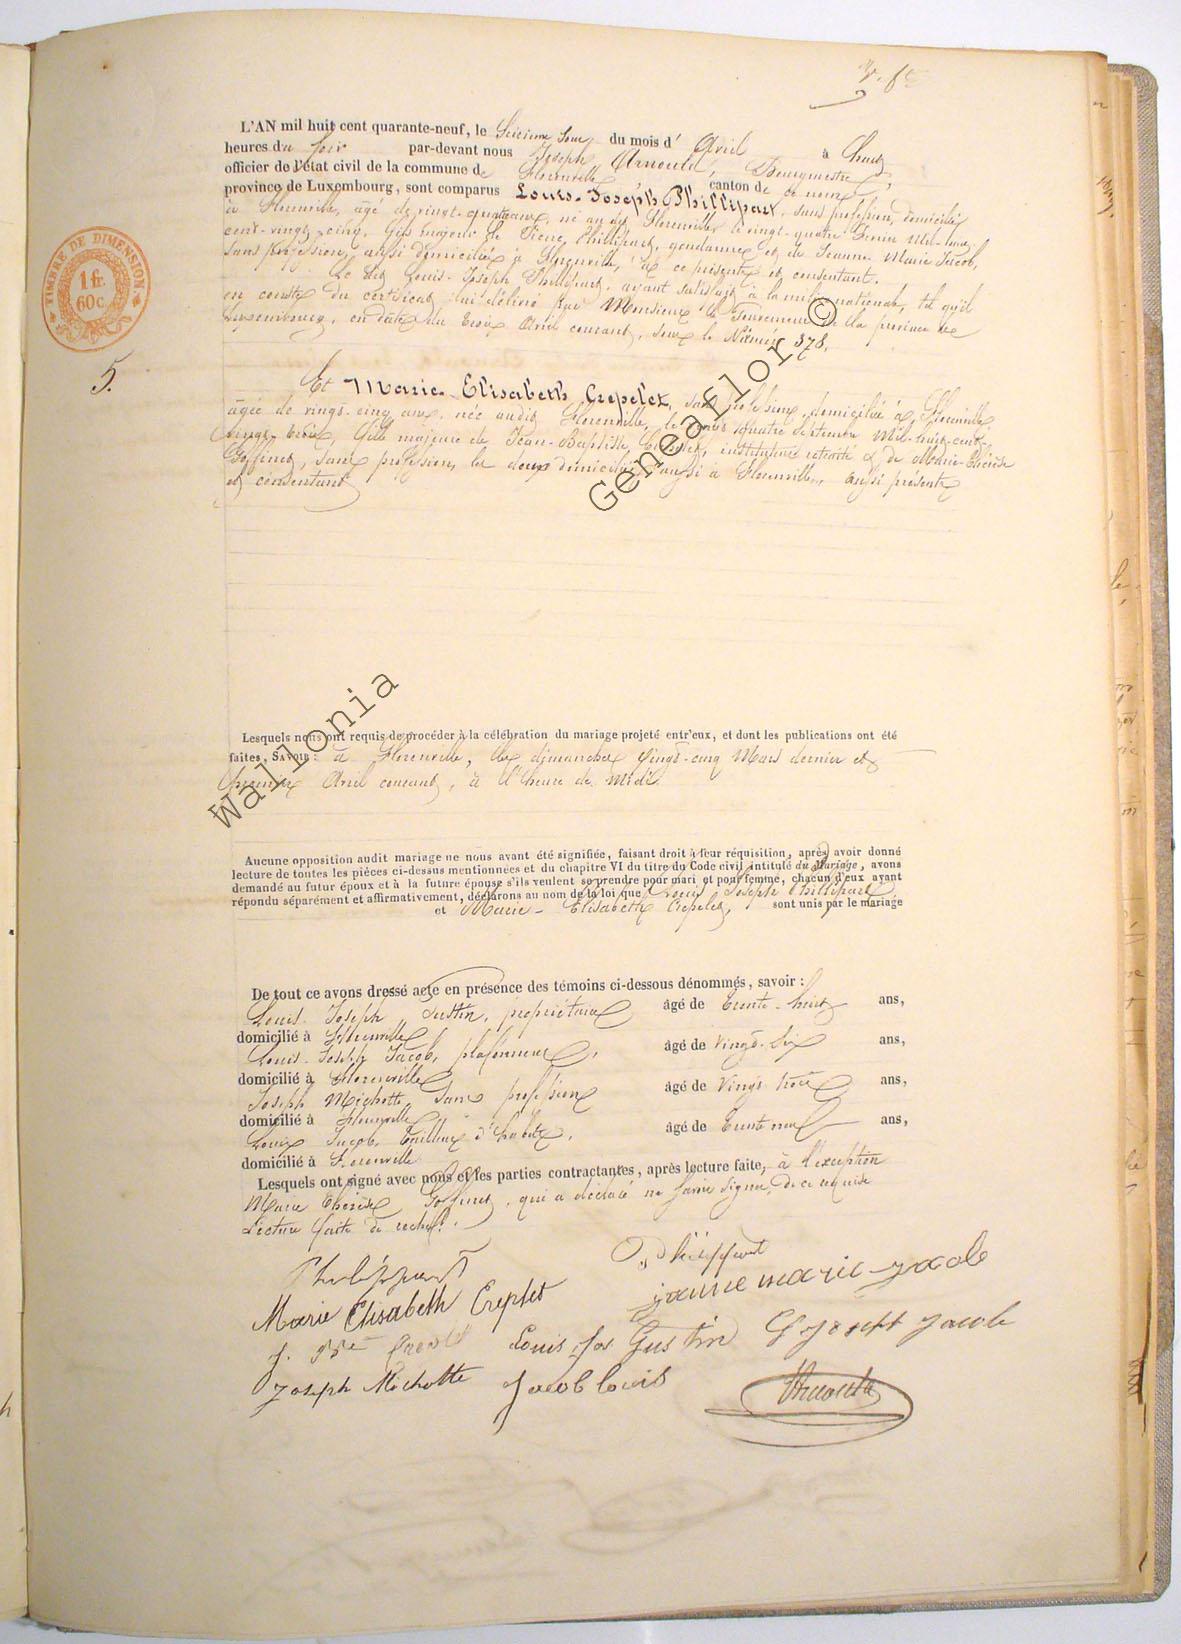 L'AN mil huit cent quarante-neuf, le Seizieme Jour du mois d' Avril à huit
heures du soir par-devant nous Joseph Arnould, Bourgmestre,
officier de l'état civil de la commune de Florenville canton de ce nom,
province de Luxembourg, sont comparus Louis-Joseph Phillipart, sans profession, domicilié
à Florenville, âgé de vingt-quatre ans, né au dit Florenville le vingt-quatre Juin Mil-huit-
cent-vingt-cinq, fils majeur de Pierre Phillipart, gendarme et de Jeanne Marie Jacob,
sans profession, aussi domiciliés à Florenville, à ce présents et consentant.
Le dit Louis-Joseph Phillipart, ayant satisfait à la milice nationale, tel qu'il
en conste du certificat lui délivré par Monsieur le Gouverneur de la province de
Luxembourg, en date du trois Avril courant, sous le Numéro 378.
TIMBRE DE DIMENSION
1 fr.
60 c.
5.
Et Marie-Elisabeth Crepelet, sans profession, domiciliée à Florenville,
âgée de vingt-cinq ans, née audit Florenville, le quatre Septembre Mil-huit-cent-
vingt-trois, fille majeure de Jean-Baptiste Crepelet, instituteur retraité et de Marie-Thérèse
Goffinet, sans profession, les deux domiciliés aussi à Florenville, aussi présents
et consentant
GeneaFlor ©
Wallonia
Lesquels nous ont requis de procéder à la célébration du mariage projeté entr'eux, et dont les publications ont été
faites, SAVOIR: à Florenville, les dimanches vingt-cinq Mars dernier et
premier Avril courant, à l'heure de Midi
Aucune opposition audit mariage ne nous ayant été signifiée, faisant droit à leur réquisition, après avoir donné
lecture de toutes les pièces ci-dessus mentionnées et du chapitre VI du titre du Code civil intitulé du Mariage, avons
demandé au futur époux et à la future épouse s'ils veulent se prendre pour mari et pour femme, chacun d'eux ayant
répondu séparément et affirmativement, déclarons au nom de la loi que Louis Joseph Phillipart
et Marie-Elisabeth Crepelet, sont unis par le mariage
De tout ce avons dressé acte en présence des témoins ci-dessous dénommés, savoir:
Louis-Joseph Justin, propriétaire âgé de trente-huit ans,
domicilié à Florenville
Louis-Joseph Jacob, plafonneur, âgé de vingt-six ans,
domicilié à Florenville
Joseph Michotte, sans profession âgé de vingt-trois ans,
domicilié à Florenville
Louis Jacob, Tailleur d'habits, âgé de trente neuf ans,
domicilié à Florenville
Lesquels ont signé avec nous et les parties contractantes, après lecture faite, à l'exception
Marie Thérèse Goffinet, qui a déclaré ne savoir signer, de ce requise
Lecture faite de rechef.
Philippart P. Philippart
Marie Elisabeth Creplet jeanne marie-jacob
j. Bte Creplet Louis Jos Gustin L Joseph Jacob
Joseph Michotte Jacob louis Arnould